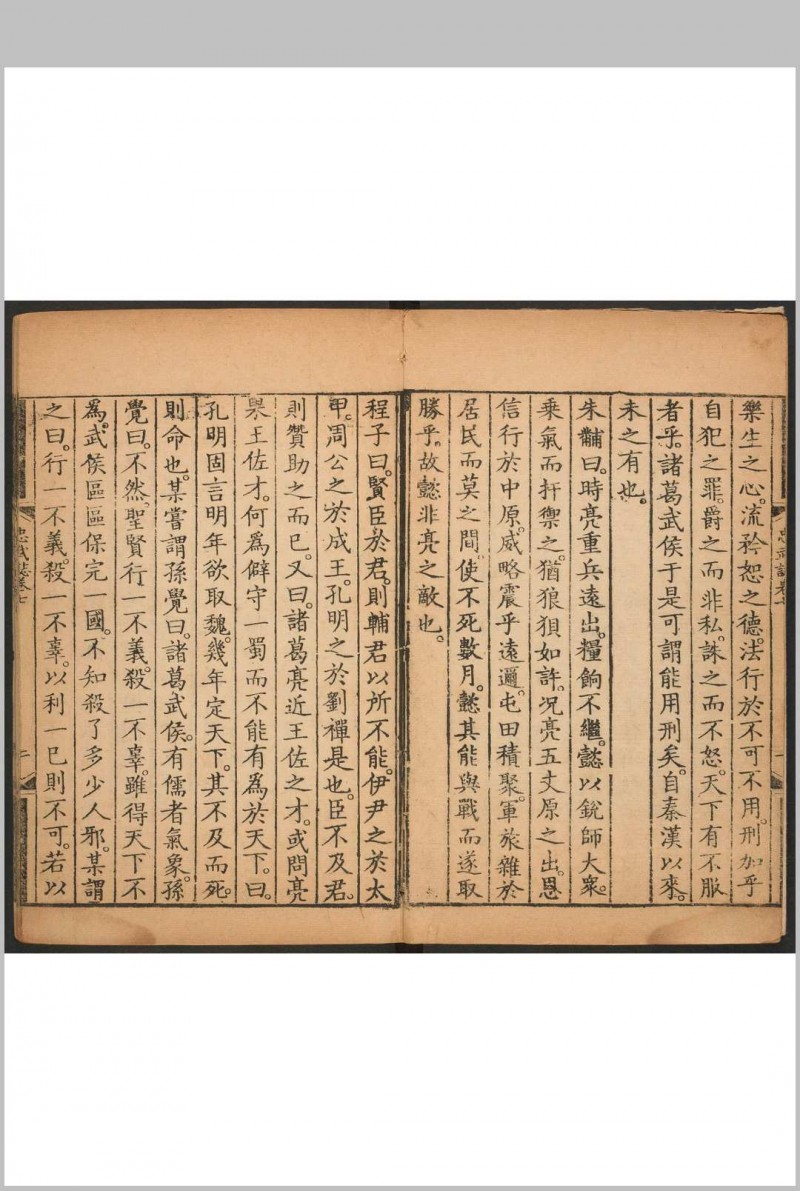 樂生之心。流矜恕之德。法行於不可不用。刑加乎
自犯之罪。爵之而非私。誅之而不怒。天下有不服
者乎。諸葛武侯于是可謂能用刑矣。自秦漢以來。
未之有也。
朱黼曰。時亮重兵遠出。糧餉不繼。懿以銳師大衆。
乗氣而扞禦之。猶狼狽如許。况亮五丈原之出。恩
信行於中原。威略震乎遠邇。屯田積聚。軍旅雜於
居民而莫之間。使不死數月。懿其能與戰而遂取
勝乎。故懿非亮之敵也。
程子曰。賢臣於君。則輔君以所不能。伊尹之於太
甲。周公之於成王。孔明之於劉禪是也。臣不及君。
則贊助之而已。又曰。諸葛亮近王佐之才。或問亮
果王佐才。何爲僻守一蜀而不能有爲於天下。曰。
孔明固言明年欲取魏。幾年定天下。其不及而死。
則命也。某嘗謂孫覺曰。諸葛武侯。有儒者氣象。孫
覺曰。不然。聖賢行一不義。殺一不辜。雖得天下不
爲。武侯區區保完一國。不知殺了多少人邪。某謂
之曰。行一不義。殺一不辜。以利一已則不可。若以
忠武誌卷七
二